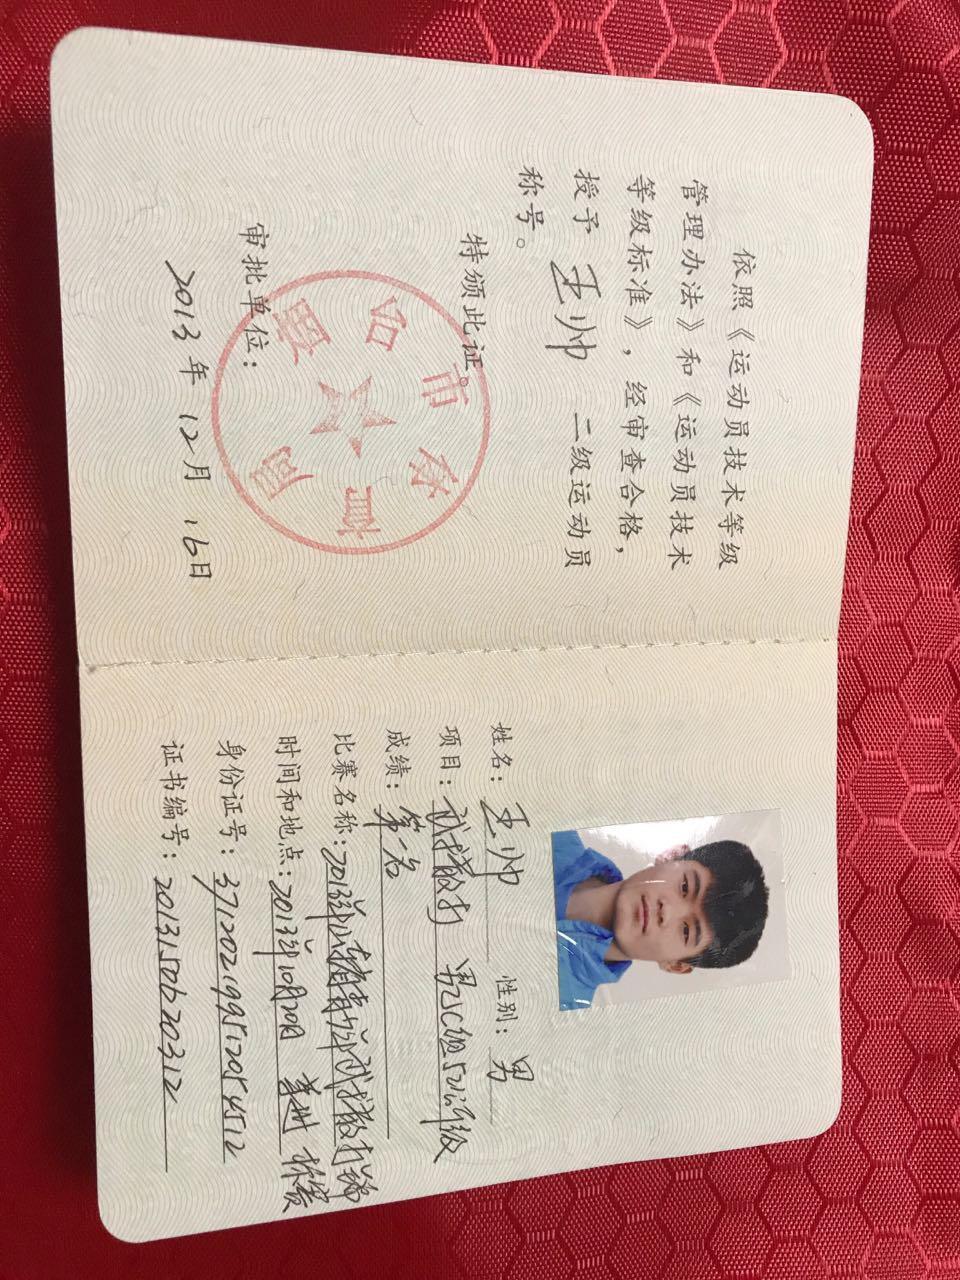 依照《运动员技术等级
管理办法》和《运动员技术
等级标准》，经审查合格，
授予 王帅 二级运动员
称号。
特颁此证。
审批单位：
烟台市体育局
2013年12月16日
姓名：王帅 性别：男
项目：武术散打 男子C组52公斤级
成绩：第一名
比赛名称：2013年山东省青少年武术散打锦标赛
时间和地点：2013年10月20日
身份证号：371202199512054512
证书编号：2013150620312